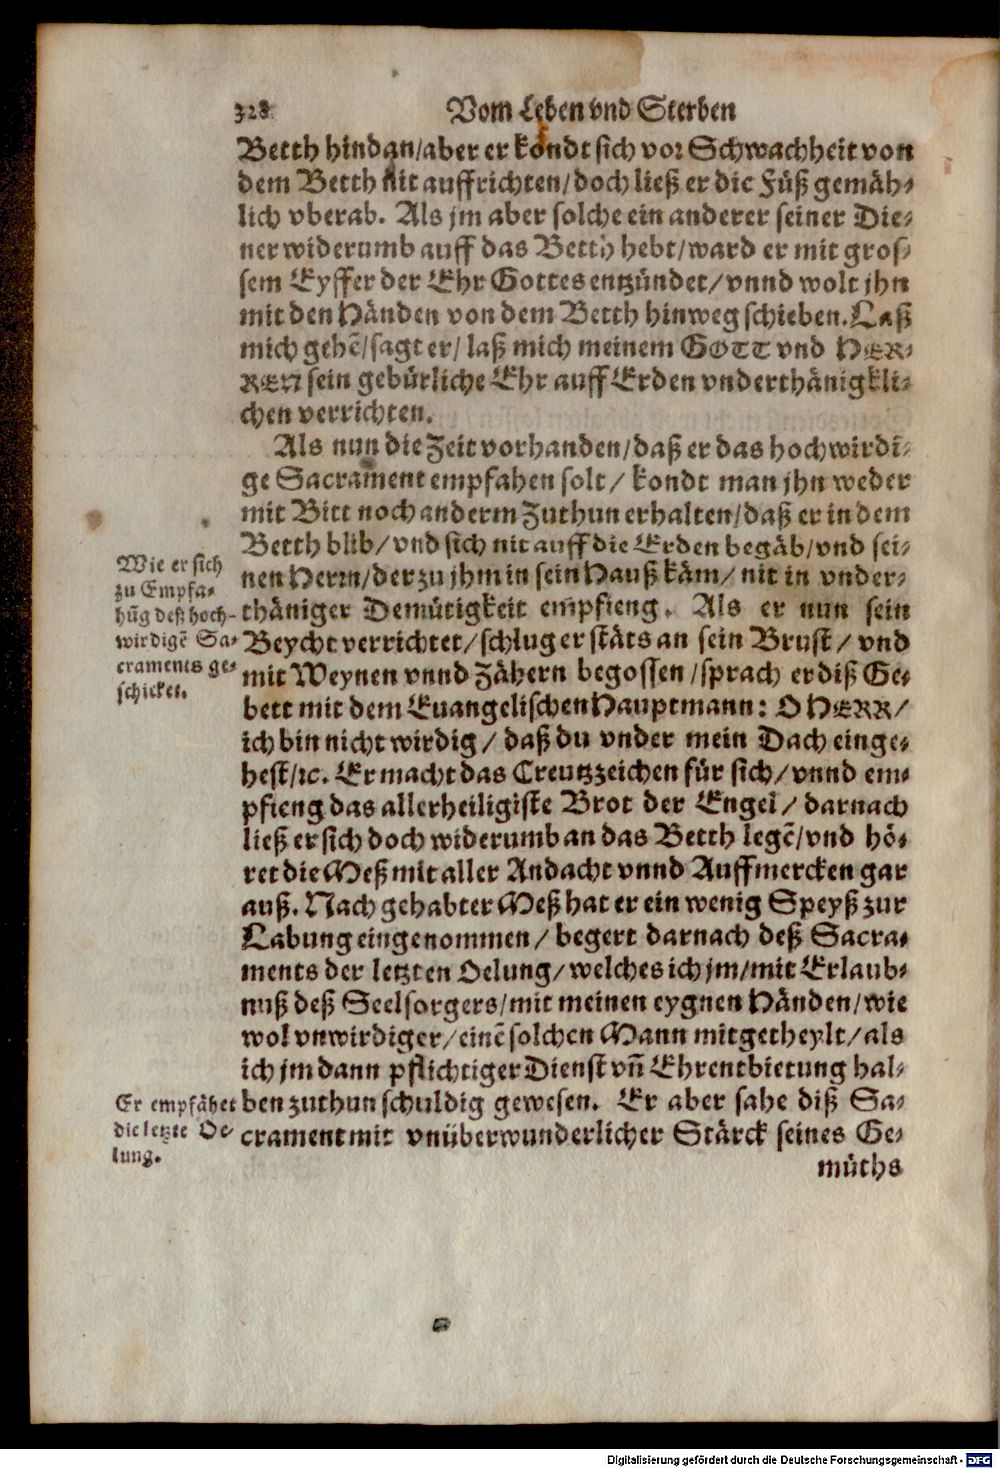 328 Vom Leben vnd Sterben
Betth hindan/aber er kondt sich vor Schwachheit von
dem Betth nit auffrichten/doch ließ er die Füß gemäh-
lich vberab. Als jm aber solche ein anderer seiner Die-
ner widerumb auff das Betth hebt/ward er mit gros-
sem Eyffer der Ehr Gottes entzündet/vnnd wolt jhn
mit den Händen von dem Betth hinweg schieben. Laß
mich gehē/sagt er/laß mich meinem GOTT vnd HER-
REN sein gebürliche Ehr auff Erden vnderthänigkli-
chen verrichten.
Als nun die Zeit vorhanden/daß er das hochwirdi-
ge Sacrament empfahen solt/ kondt man jhn weder
mit Bitt noch anderm Zuthun erhalten/daß er in dem
Betth blib/vnd sich nit auff die Erden begäb/vnd sei-
nen Herrn/der zu jhm in sein Hauß käm/ nit in vnder-
thäniger Demütigkeit empfieng. Als er nun sein
Beycht verrichtet/schlug er stäts an sein Brust/ vnd
mit Weynen vnnd Zähern begossen/sprach er diß Ge-
bett mit dem Euangelischen Hauptmann: O HERR/
ich bin nicht wirdig/ daß du vnder mein Dach einge-
hest/ꝛc. Er macht das Creutzzeichen für sich/vnnd em-
pfieng das allerheiligiste Brot der Engel/ darnach
ließ er sich doch widerumb an das Betth legē/vnd hö-
ret die Meß mit aller Andacht vnnd Auffmercken gar
auß. Nach gehabter Meß hat er ein wenig Speyß zur
Labung eingenommen/ begert darnach deß Sacra-
ments der letzten Oelung/welches ich jm/mit Erlaub-
nuß deß Seelsorgers/mit meinen eygnen Händen/wie
wol vnwirdiger/einē solchen Mann mitgetheylt/als
ich jm dann pflichtiger Dienst vñ Ehrentbietung hal-
ben zuthun schuldig gewesen. Er aber sahe diß Sa-
crament mit vnüberwunderlicher Stärck seines Ge-
müths
Wie er sich
zu Empfa-
hūg deß hoch-
wirdigē Sa-
craments ge-
schicket.
Er empfähet
die letzte Oe-
lung.
Digitalisierung gefördert durch die Deutsche Forschungsgemeinschaft - DFG